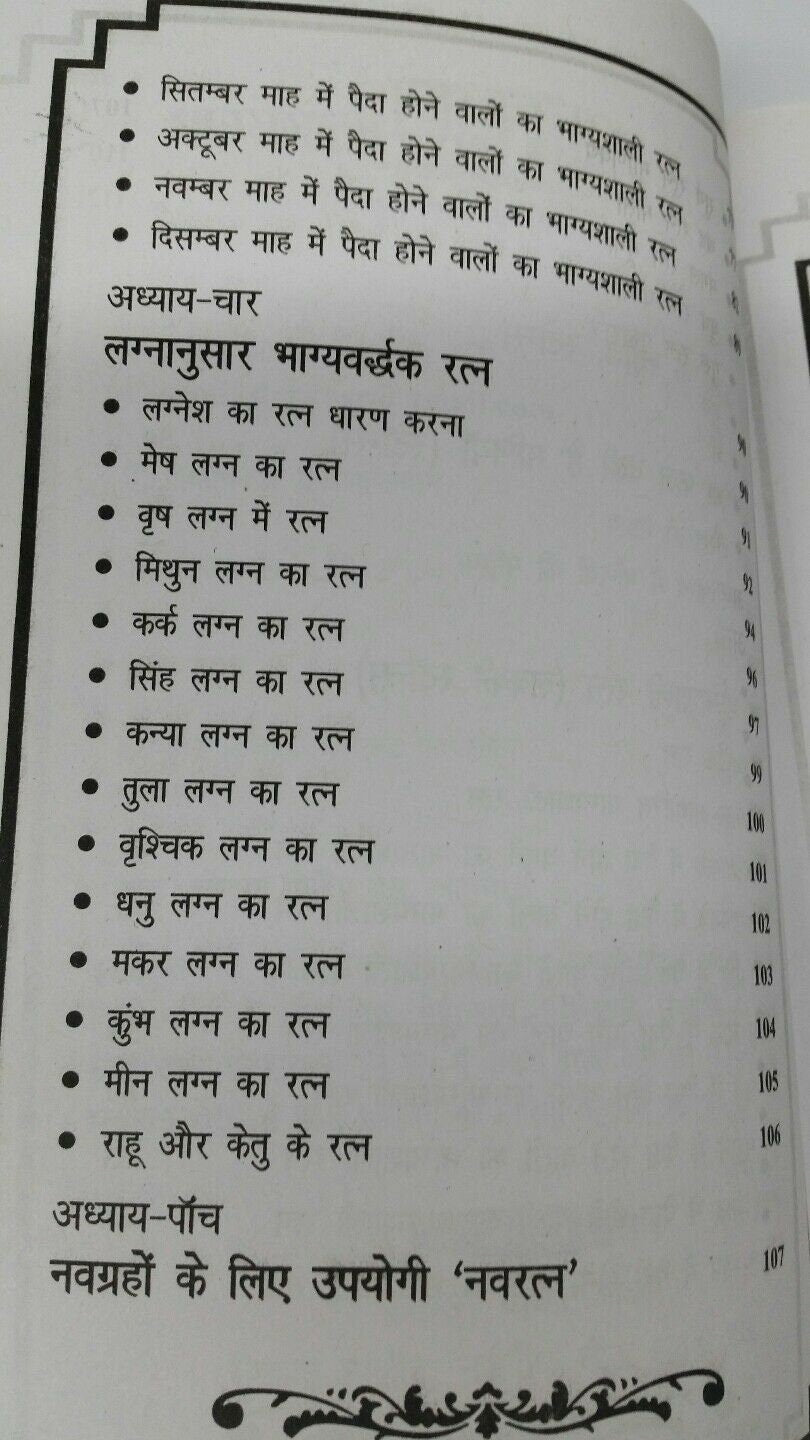 • सितम्बर माह में पैदा होने वालों का भाग्यशाली रत्न
• अक्टूबर माह में पैदा होने वालों का भाग्यशाली रत्न
• नवम्बर माह में पैदा होने वालों का भाग्यशाली रत्न
• दिसम्बर माह में पैदा होने वालों का भाग्यशाली रत्न
अध्याय-चार
लग्नानुसार भाग्यवर्द्धक रत्न
• लग्नेश का रत्न धारण करना
• मेष लग्न का रत्न 90
• वृष लग्न में रत्न 91
• मिथुन लग्न का रत्न 92
• कर्क लग्न का रत्न 94
• सिंह लग्न का रत्न 96
• कन्या लग्न का रत्न 97
• तुला लग्न का रत्न 99
• वृश्चिक लग्न का रत्न 100
• धनु लग्न का रत्न 101
• मकर लग्न का रत्न 102
• कुंभ लग्न का रत्न 103
• मीन लग्न का रत्न 104
• राहू और केतु के रत्न 105
अध्याय-पाॅच 106
नवग्रहों के लिए उपयोगी ‘नवरत्न’ 107